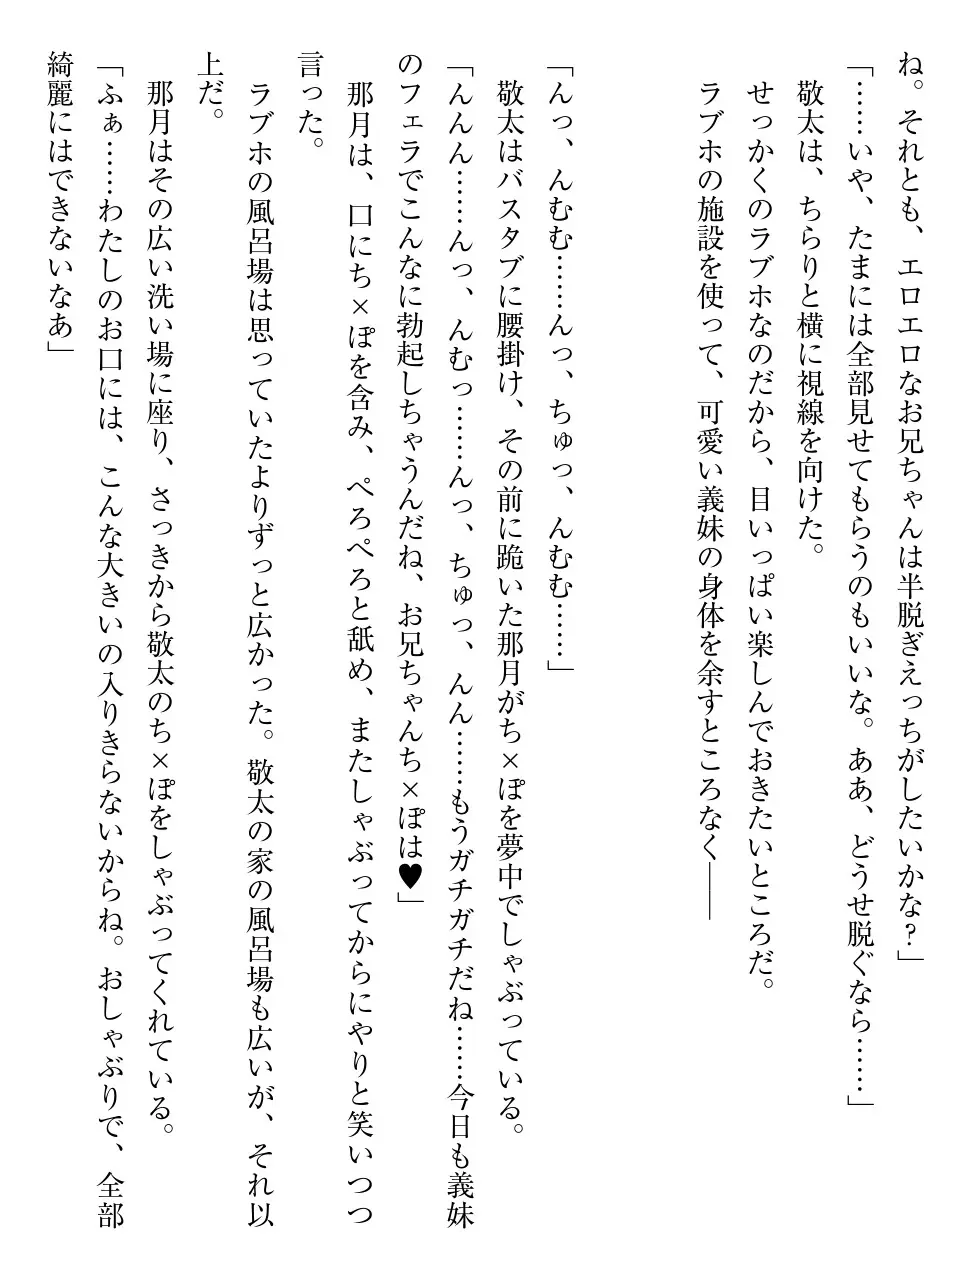 ね。それとも、エロエロなお兄ちゃんは半脱ぎえっちがしたいかな？」
「……いや、たまには全部見せてもらうのもいいな。ああ、どうせ脱ぐなら……」
敬太は、ちらりと横に視線を向けた。
せっかくのラブホなのだから、目いっぱい楽しんでおきたいところだ。
ラブホの施設を使って、可愛い義妹の身体を余すところなく――
「んっ、んむむ……んっ、ちゅっ、んむむ……」
敬太はバスタブに腰掛け、その前に跪いた那月がち×ぽを夢中でしゃぶっている。
「んんん……んっ、んむっ……んっ、ちゅっ、んん……もうガチガチだね……今日も義妹
のフェラでこんなに勃起しちゃうんだね、お兄ちゃんち×ぽは♥」
那月は、口にち×ぽを含み、ぺろぺろと舐め、またしゃぶってからにやりと笑いつつ
言った。
ラブホの風呂場は思っていたよりずっと広かった。敬太の家の風呂場も広いが、それ以
上だ。
那月はその広い洗い場に座り、さっきから敬太のち×ぽをしゃぶってくれている。
「ふぁ……わたしのお口には、こんな大きいの入りきらないからね。おしゃぶりで、全部
綺麗にはできないなあ」